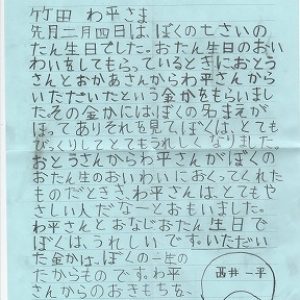 竹田 わ平さま
先月二月四日は、ぼくの七さいの
たん生日でした。おたん生日のおい
わいをしてもらっているときにおとう
さんとおかあさんからわ平さんから
いただいたという金かをもらいまし
た。その金かには、ぼくの名まえが
ほってありそれを見て、ぼくは、とても
びっくりしてとてもうれしくなりました。
おとうさんからわ平さんがぼくの
おたん生のおいわいにおくってくれた
ものだとききわ平さんはとてもや
さしい人だなーとおもいました。
わ平さんとおなじおたん生日で
ぼくは、うれしいです。いただい
た金かは、ぼくの一生の
たからものです。わ平
さんからのおきもちを、
西井 一平